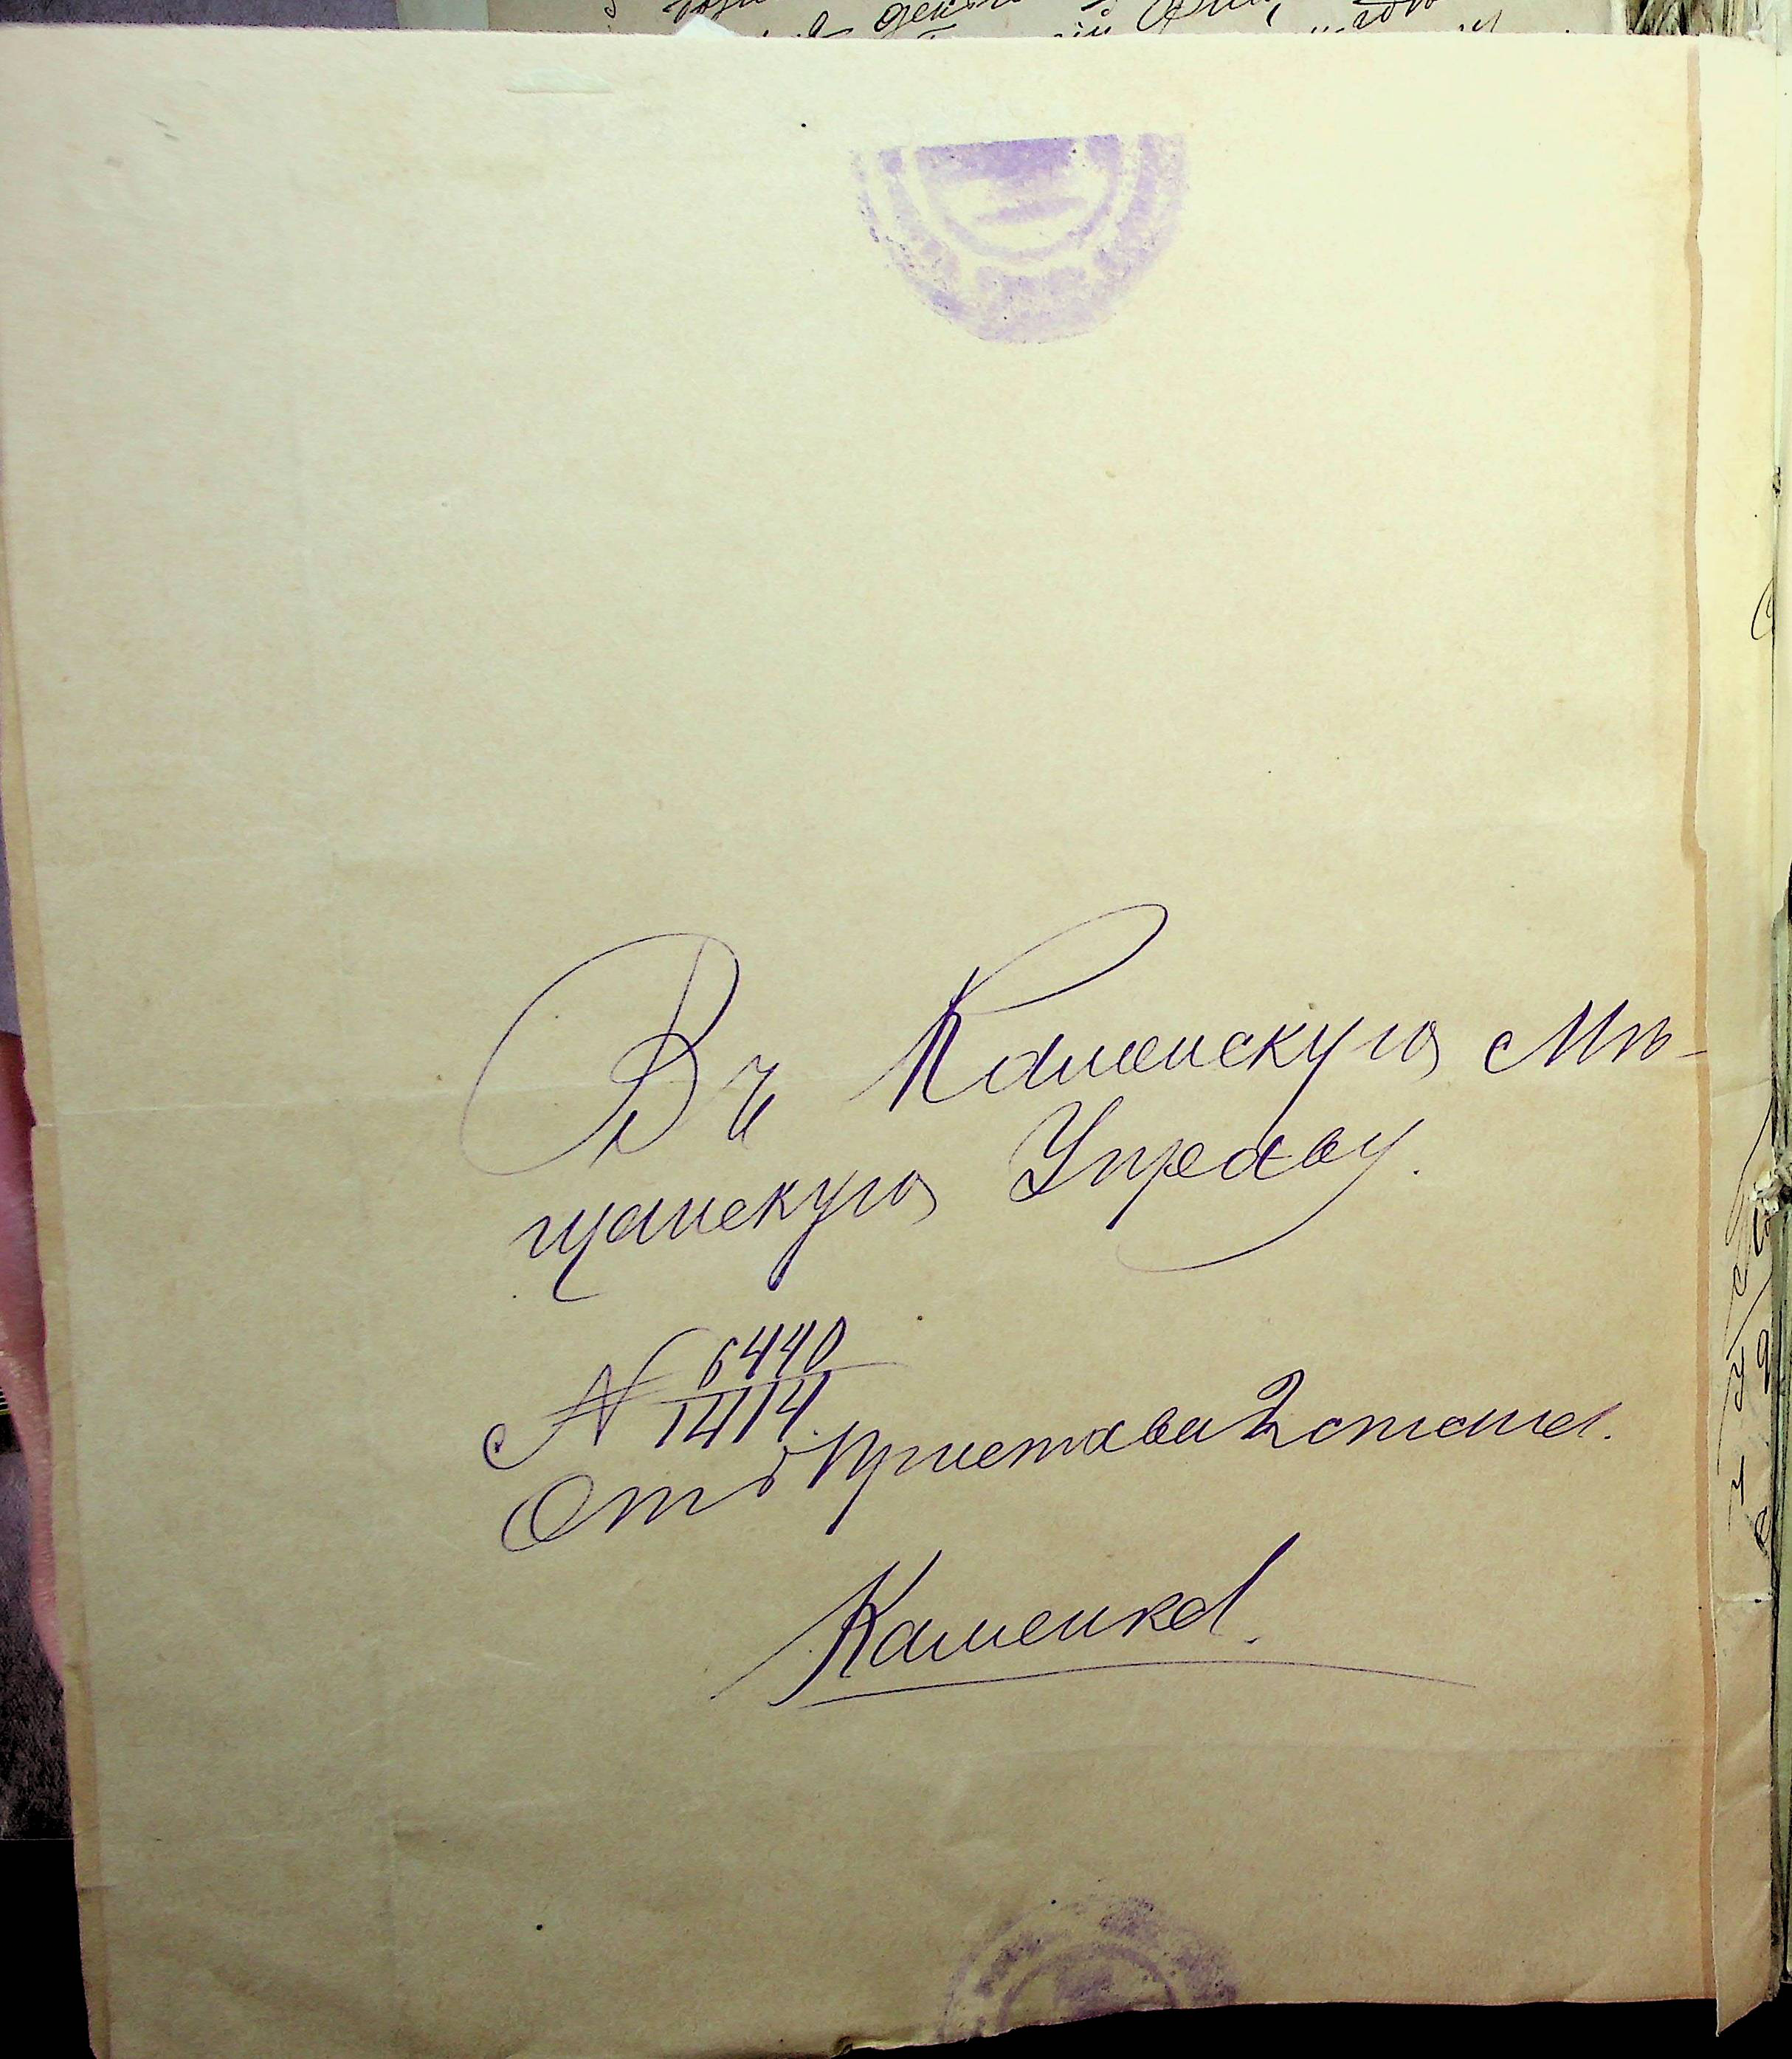 Въ Каменскую Мѣ-
щанскую Управу.
№ 6440/1414.
Отъ Пристава 2 стана.
Каменка.